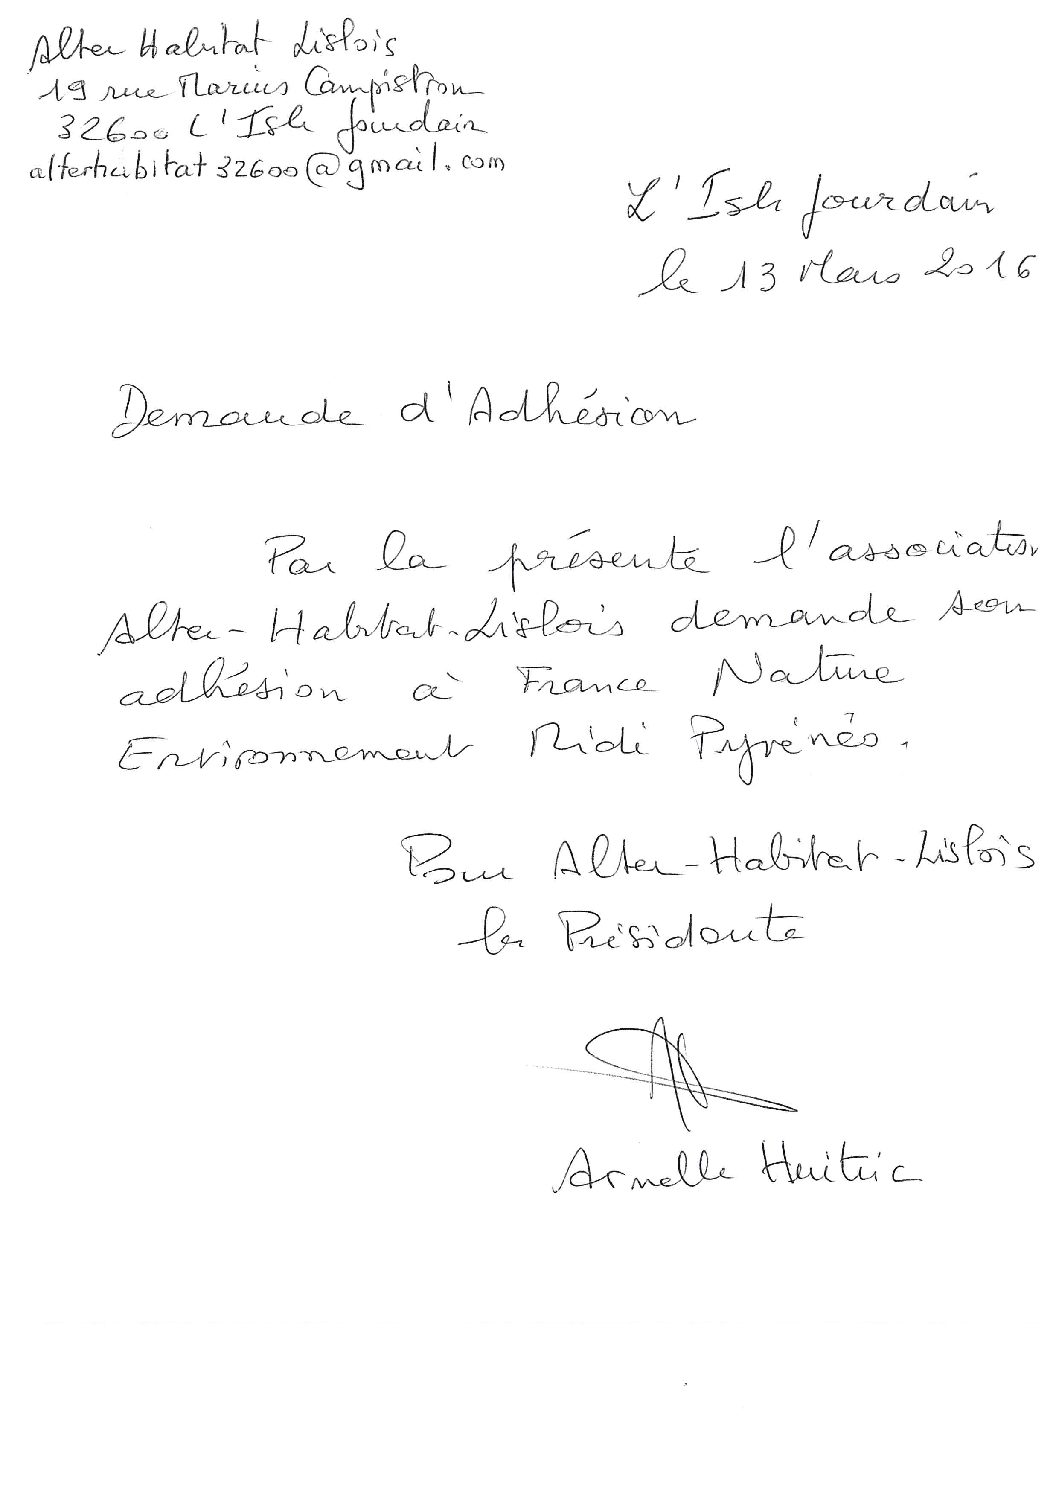 Alter Habitat Lislois
19 rue Marius Campistron
32600 L'Isle Jourdain
alterhabitat32600@gmail.com
L'Isle Jourdain
le 13 Mars 2016
Demande d'Adhésion
Par la présente l'association
Alter-Habitat-Lislois demande son
adhésion à France Nature
Environnement Midi Pyrénées.
Pour Alter-Habitat-Lislois
la Présidente
Armelle Huitric